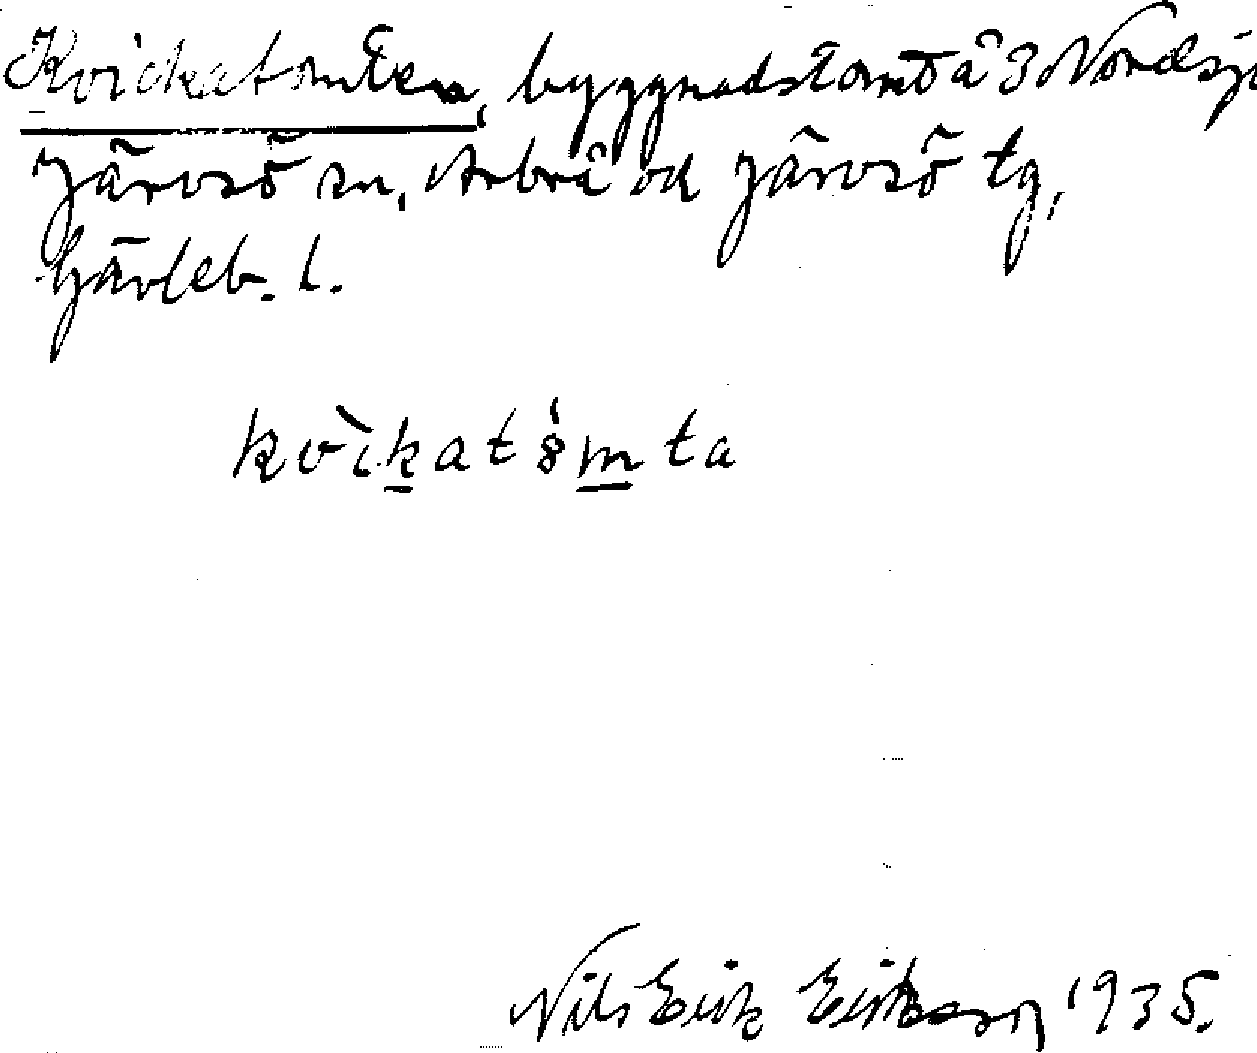 Kvickatomten, byggnadstomt å 3 Nordsjö
Järvsö sn, Arbrå ock Järvsö tg,
Gävleb. l.
kvìkat8́mta
Nils Erik Eriksson 1935.